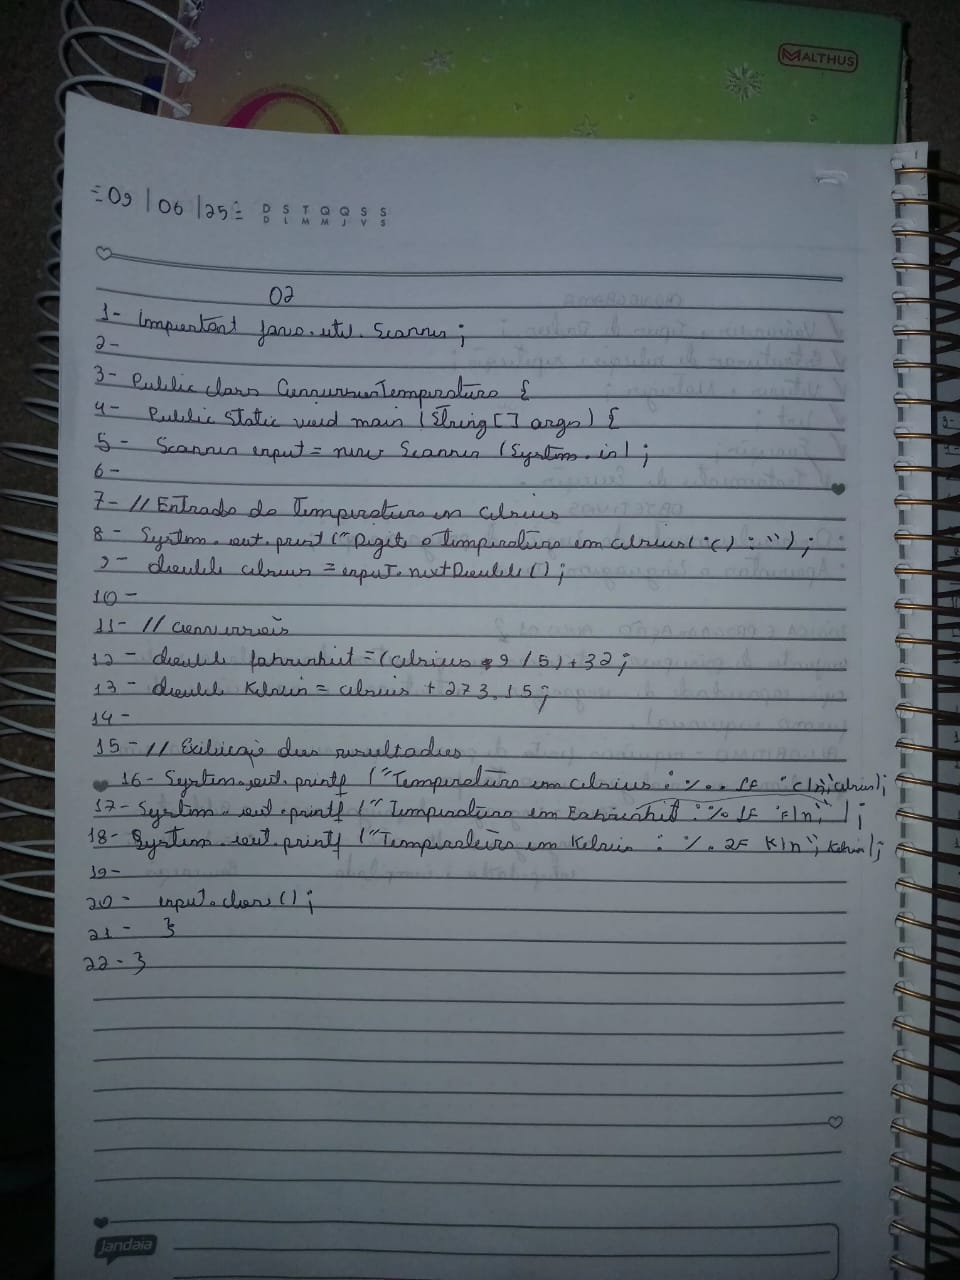 MALTHUS
09 | 06 | 25 D S T Q Q S S
D L M M J V S
02
1- Important java.util.Scanner;
2-
3- Public class ConversorTemperatura {
4- Public Static void main (String [] args) {
5- Scanner input = new Scanner (System.in);
6-
7- // Entrada da Temperatura em celsius
8- System.out.print ("Digite a temperatura em celsius (°C) : ");
9- double celsius = input.nextDouble ();
10-
11- // conversões
12- double fahrenheit = (celsius * 9 / 5) + 32;
13- double Kelvin = celsius + 273,15;
14-
15- // Exibição dos resultados
16- System.out.printf ("Temperatura em celsius : %.. ff °c\n", celsius);
17- System.out.printf ("Temperatura em Fahrenheit : % ff °F\n", );
18- System.out.printf ("Temperatura em Kelvin : %. 2F K\n", Kelvin);
19-
20- input.close ();
21- }
22- }
Jandaia